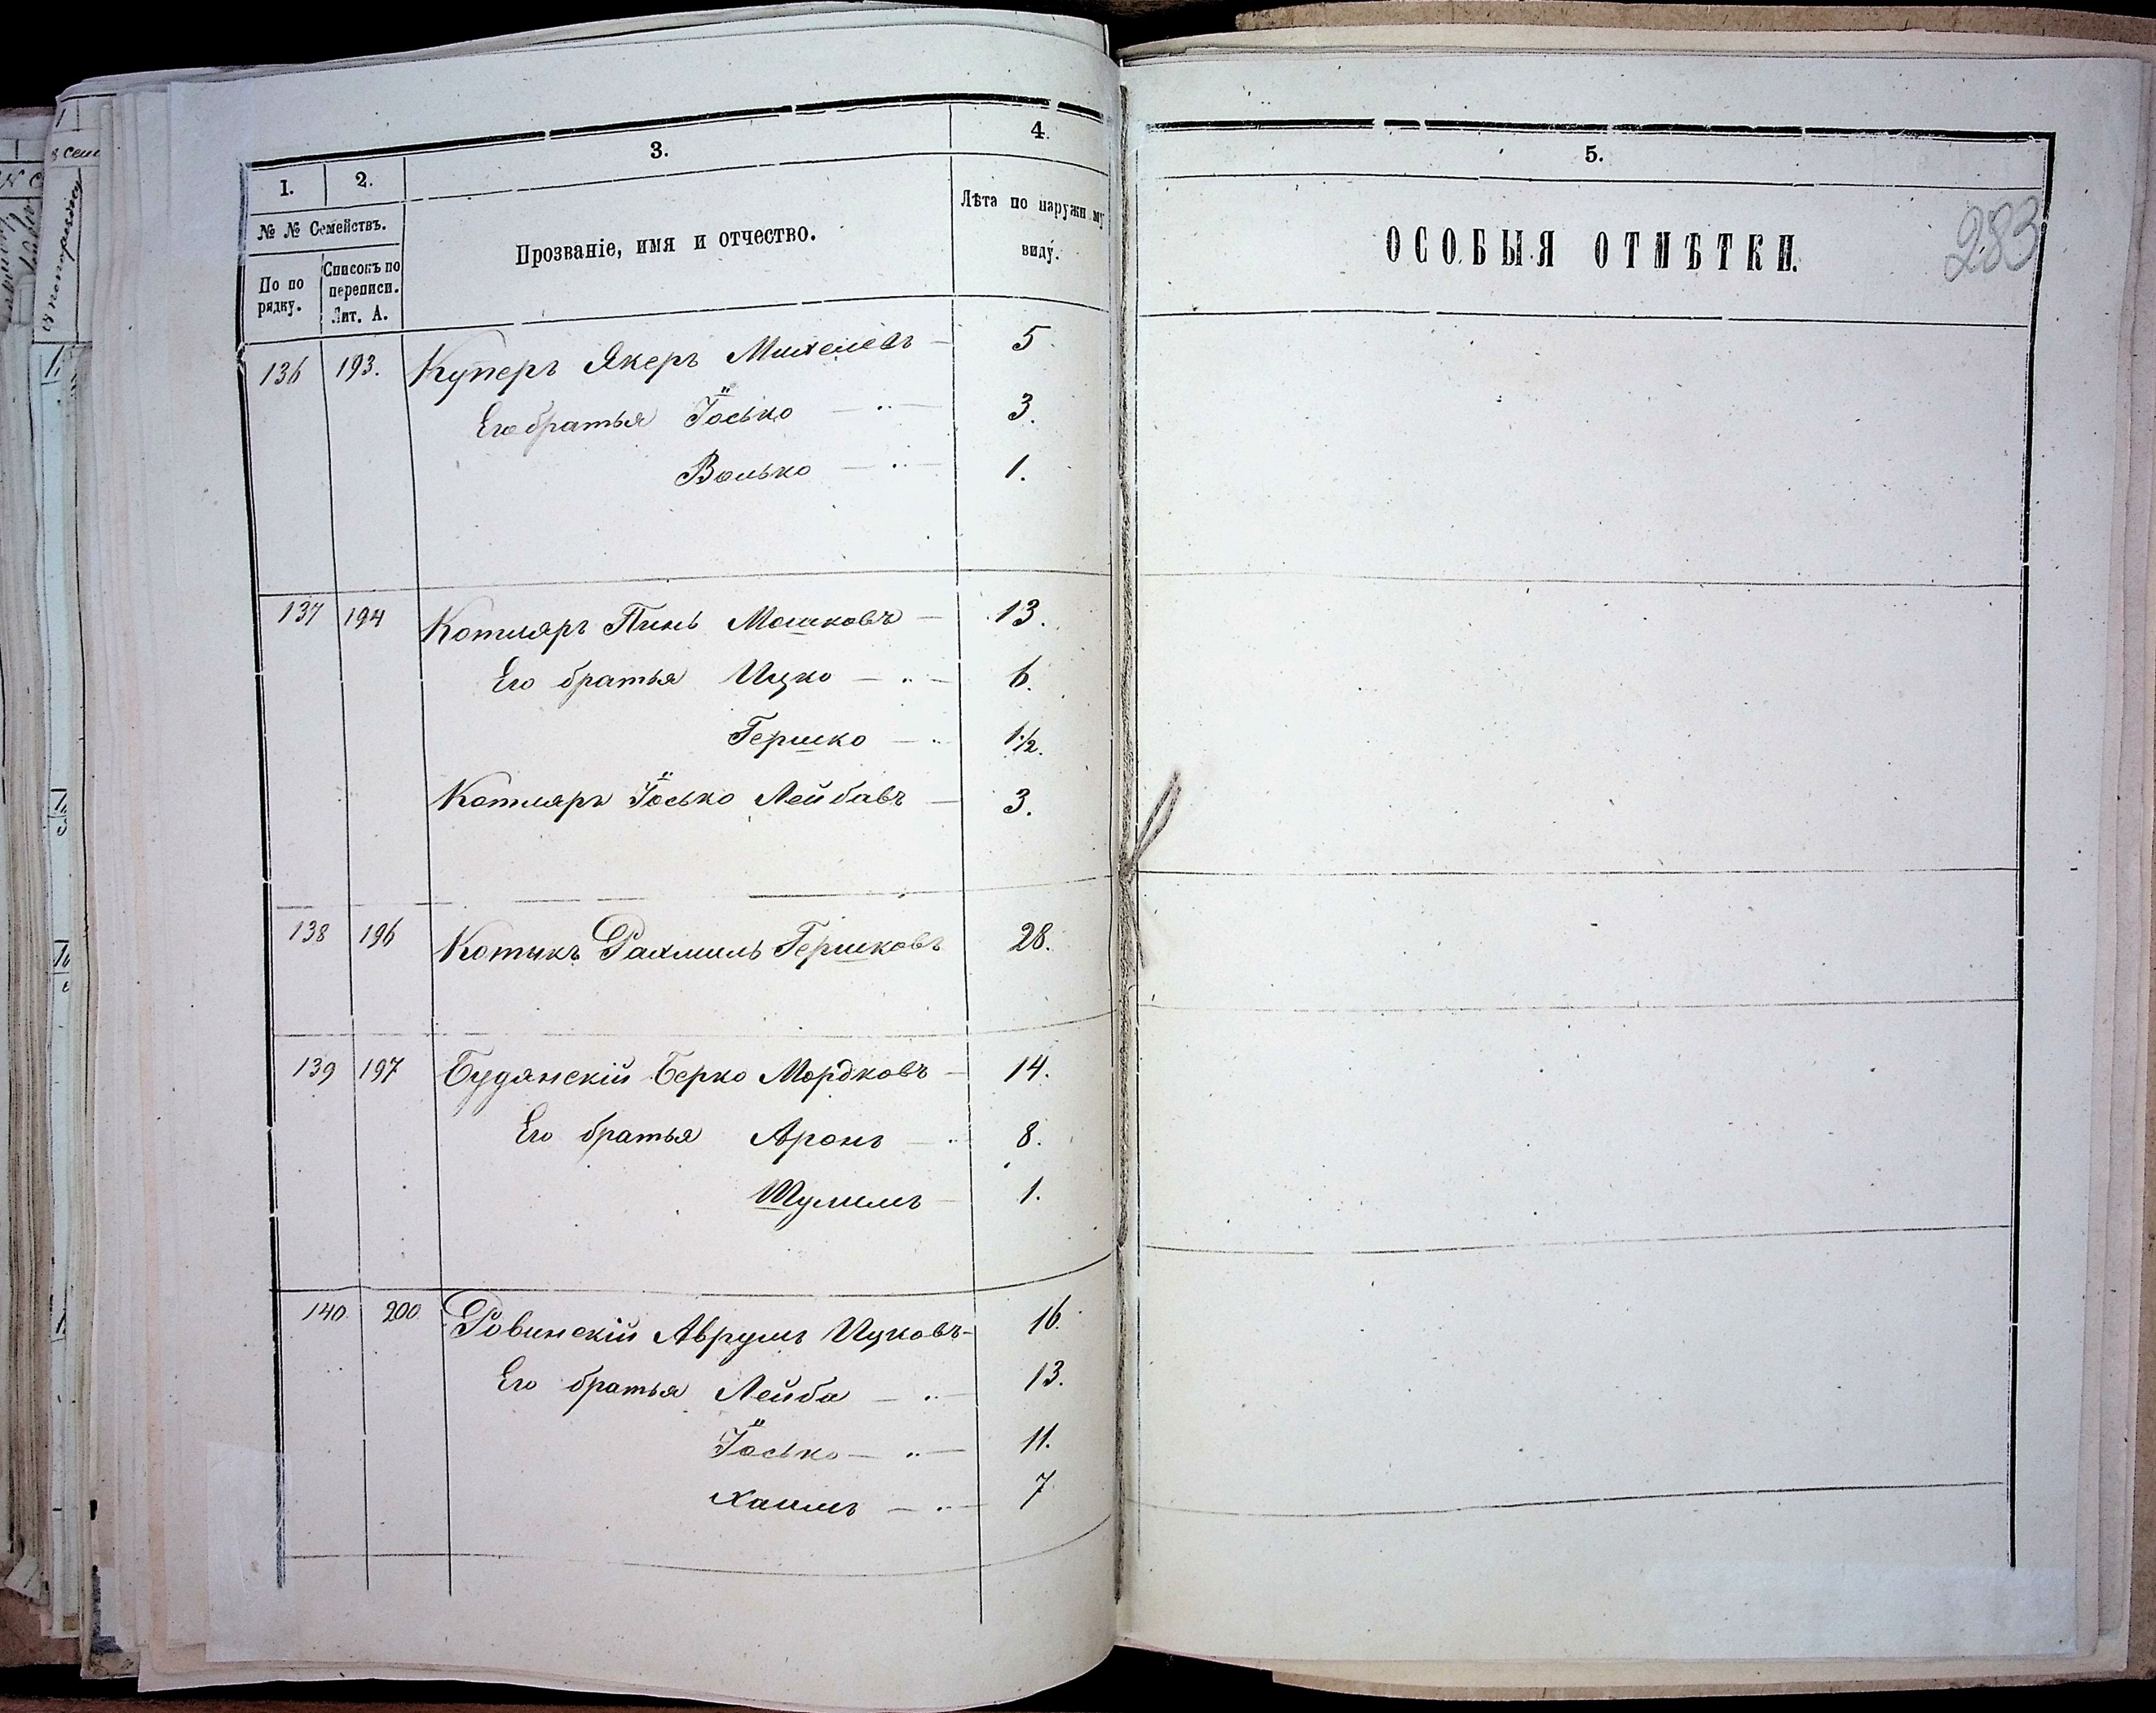 1. 2. 3. 4.
№ № Семействъ.
По по рядку.
Списокъ по переписи. Лит. А.
Прозваніе, имя и отчество.
Лѣта по наружн му виду.
136 193. Куперъ Якеръ Михелевъ — 5
Его братья Іосько — " — 3.
Волько — " — 1.
137 194 Котляръ Пинь Мошковъ — 13.
Его братья Ицко — " — 6.
Гершко — " 1½.
Котляръ Іосько Лейбовъ — 3.
138 196 Котыкъ Рахмиль Гершковъ 28.
139 197 Будянскій Берко Мордковъ — 14.
Его братья Аронъ — " 8.
Шулимъ — 1.
140 200 Ровинскій Аврумъ Ицковъ - 16.
Его братья Лейба — " — 13.
Іосько — " — 11.
Хаимъ — " — 7
5.
ОСОБЫЯ ОТМѢТКИ.
283